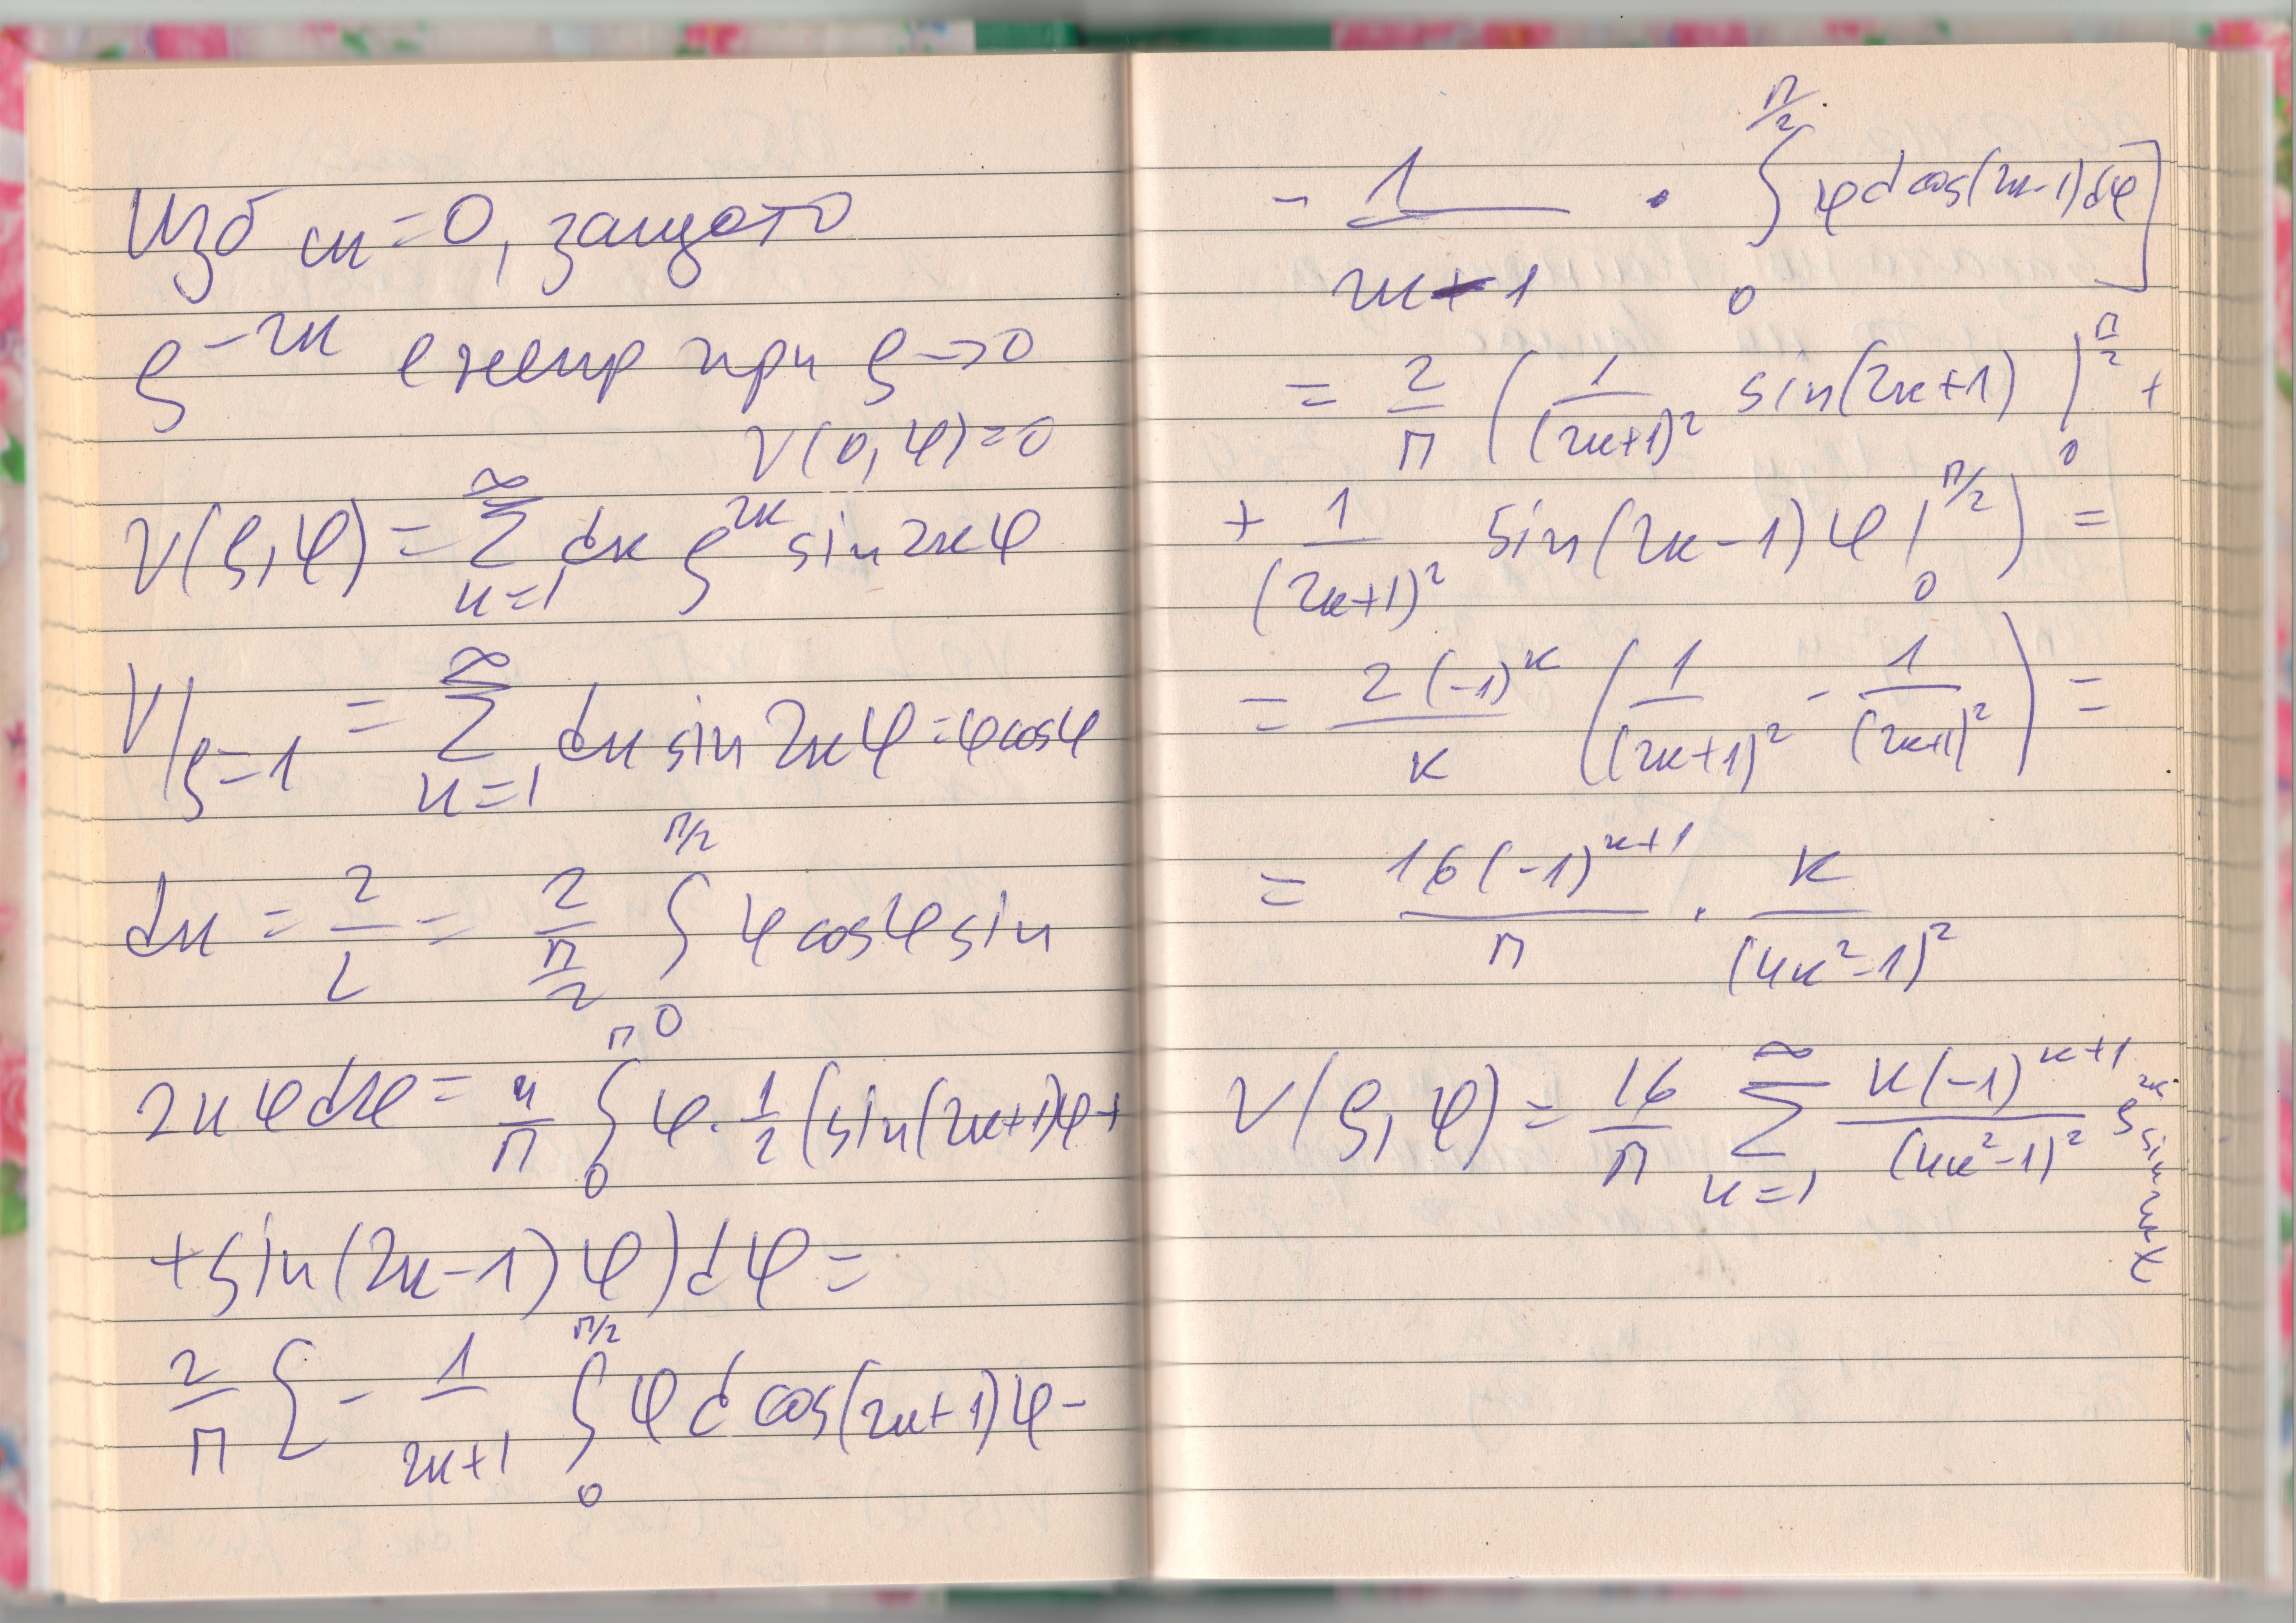 Изб m=0, защото
ρ^{-2k} е неогр при ρ→0
V(0,φ)=0
V(ρ,φ) = ∑_{k=1}^{∞} dk ρ^{2k} sin2kφ
V|_{ρ=1} = ∑_{k=1}^{∞} dk sin2kφ = φcosφ
dk = 2/L = 2/(π/2) ∫_0^{π/2} φcosφ sin
2kφdφ = 4/π ∫_0^{π} φ·1/2 (sin(2k+1)φ+
+sin(2k-1)φ)dφ =
2/π { - 1/(2k+1) ∫_0^{π/2} φ d cos(2k+1)φ -
- 1/(2k-1) · ∫_0^{π/2} φ d cos(2k-1)dφ ]
= 2/π ( 1/(2k+1)² sin(2k+1) |_0^{π/2} +
+ 1/(2k+1)² sin(2k-1)φ |_0^{π/2} ) =
= 2(-1)^k/κ ( 1/(2k+1)² - 1/(2k+1)² ) =
= 16(-1)^{k+1}/π · k/(4k²-1)²
V(ρ,φ) = 16/π ∑_{k=1}^{∞} k(-1)^{k+1}/(4k²-1)² ρ^{2k} sin2kφ